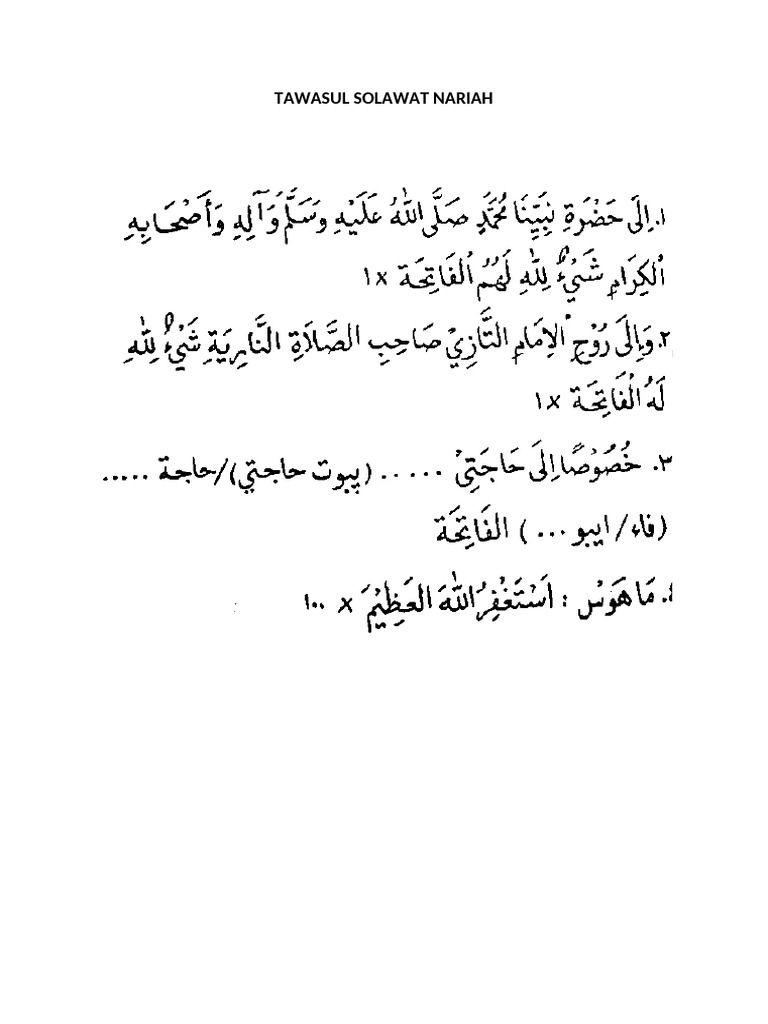 TAWASUL SOLAWAT NARIAH
١. اِلَى حَضْرَةِ نَبِيِّنَا مُحَمَّدٍ صَلَّى اللهُ عَلَيْهِ وَسَلَّمَ وَآلِهِ وَأَصْحَابِهِ
الْكِرَامِ شَيْءٌ لِلّٰهِ لَهُمُ الْفَاتِحَة ١x
٢. وَإِلَى رُوْحِ الْاِمَامِ التَّازِيْ صَاحِبِ الصَّلَاةِ النَّارِيَةِ شَيْءٌ لِلّٰهِ
لَهُ الْفَاتِحَة ١x
٣. خُصُوْصًا اِلَى حَاجَتِيْ ..... (پبوت حاجتي)/حاجة .....
(فاء/ ايبو ...) الفَاتِحَة
٤. مَاهَوَسْ : اَسْتَغْفِرُ اللّٰهَ العَظِيْمَ x ١٠٠